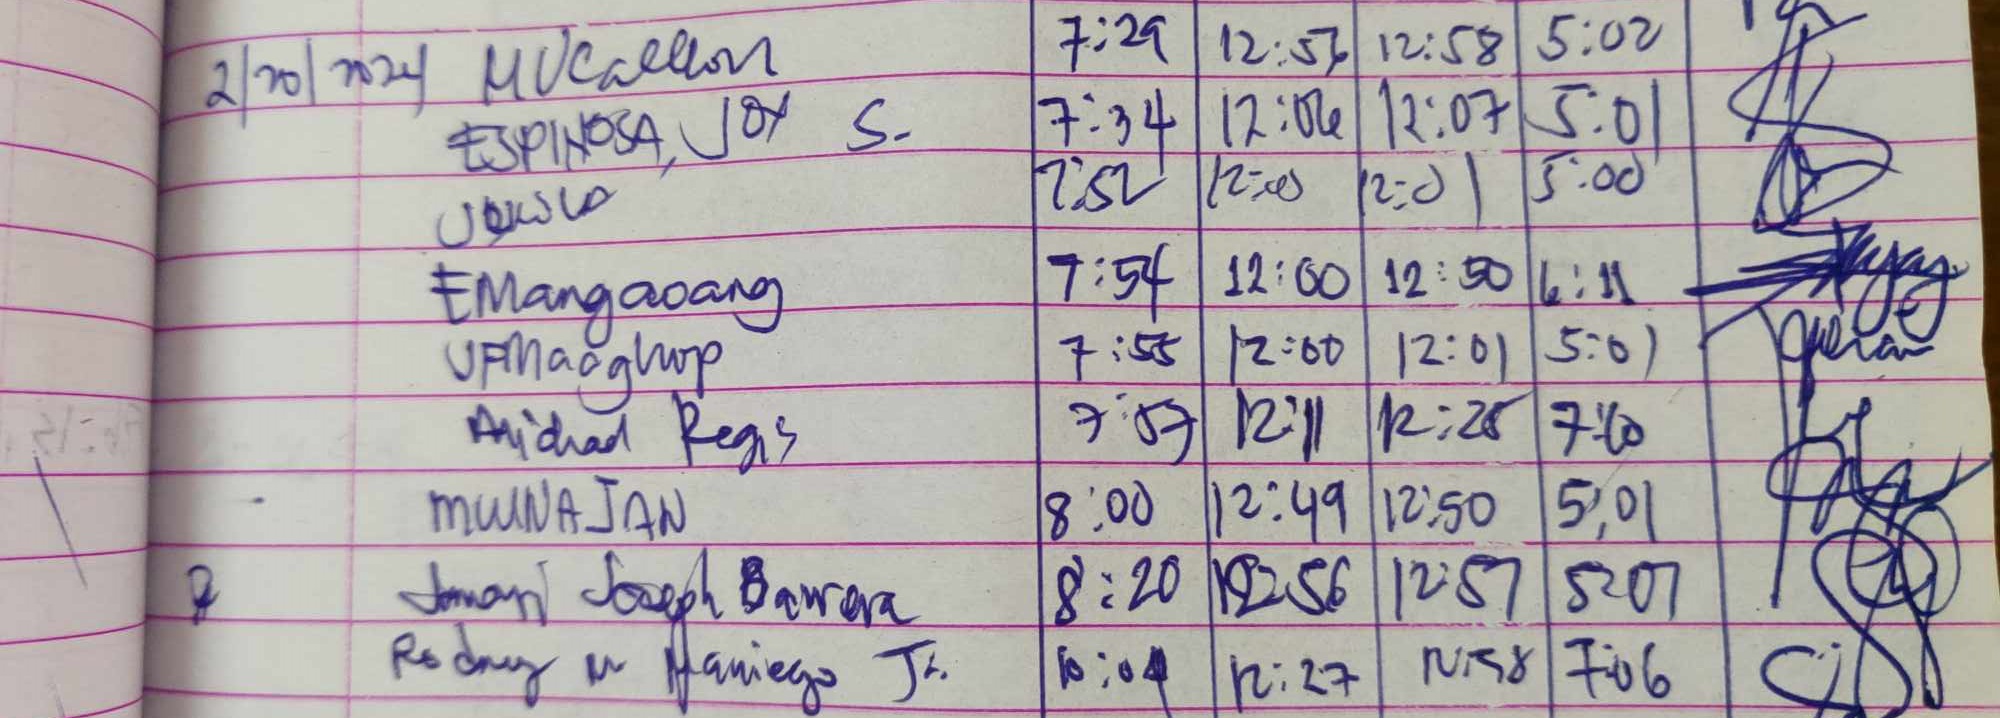 2/20/2024 MVCallon 7:29 12:57 12:58 5:02
ESPINOSA, JOY S. 7:34 12:06 12:07 5:01
7:52 12:00 12:01 5:00
EMangaoang 7:54 12:00 12:50 6:11
7:55 12:00 12:01 5:01
Regis 7:57 12:11 12:25 7:10
8:00 12:49 12:50 5:01
Joseph Barrera 8:20 12:56 12:57 5:07
Rodney M Maniego Jr. 10:04 12:27 12:58 7:06